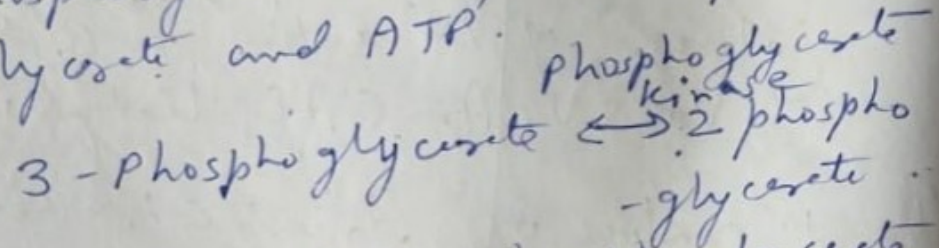 lycerate and ATP.
phosphoglycerate
kinase
3-Phosphoglycerate ↔ 2 phospho
-glycerate.